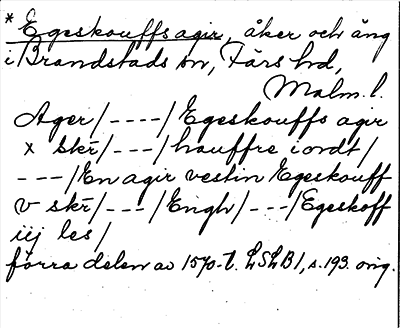 * Egeskouffs agir, åker och äng
i Brandstads sn, Färs hd,
Malm. l.
Ager / ---- / Egeskouffs agir
x skr̄ / --- / hauffre iordt /
--- / En agir vestin Egeskouff
v skr̄ / --- / Engh / --- / Egeskoff
iij les /
förra delen av 1570-t. LSLB 1, s. 193. orig.